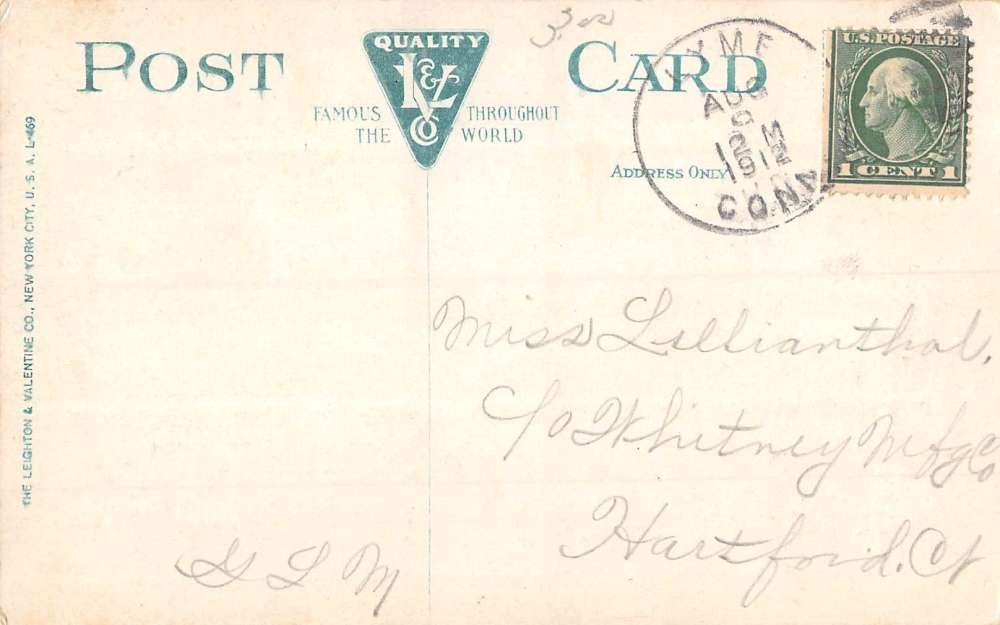 3.00
POST CARD
QUALITY
V & L
CO
FAMOUS THROUGHOUT
THE WORLD
ADDRESS ONLY
LYME
AUG
12 M
1912
CONN
U.S. POSTAGE
1 CENT 1
THE LEIGHTON & VALENTINE CO., NEW YORK CITY, U. S. A. L-469
Miss Lillianthal,
c/o Whitney Mfg Co
Hartford, Ct
G L M